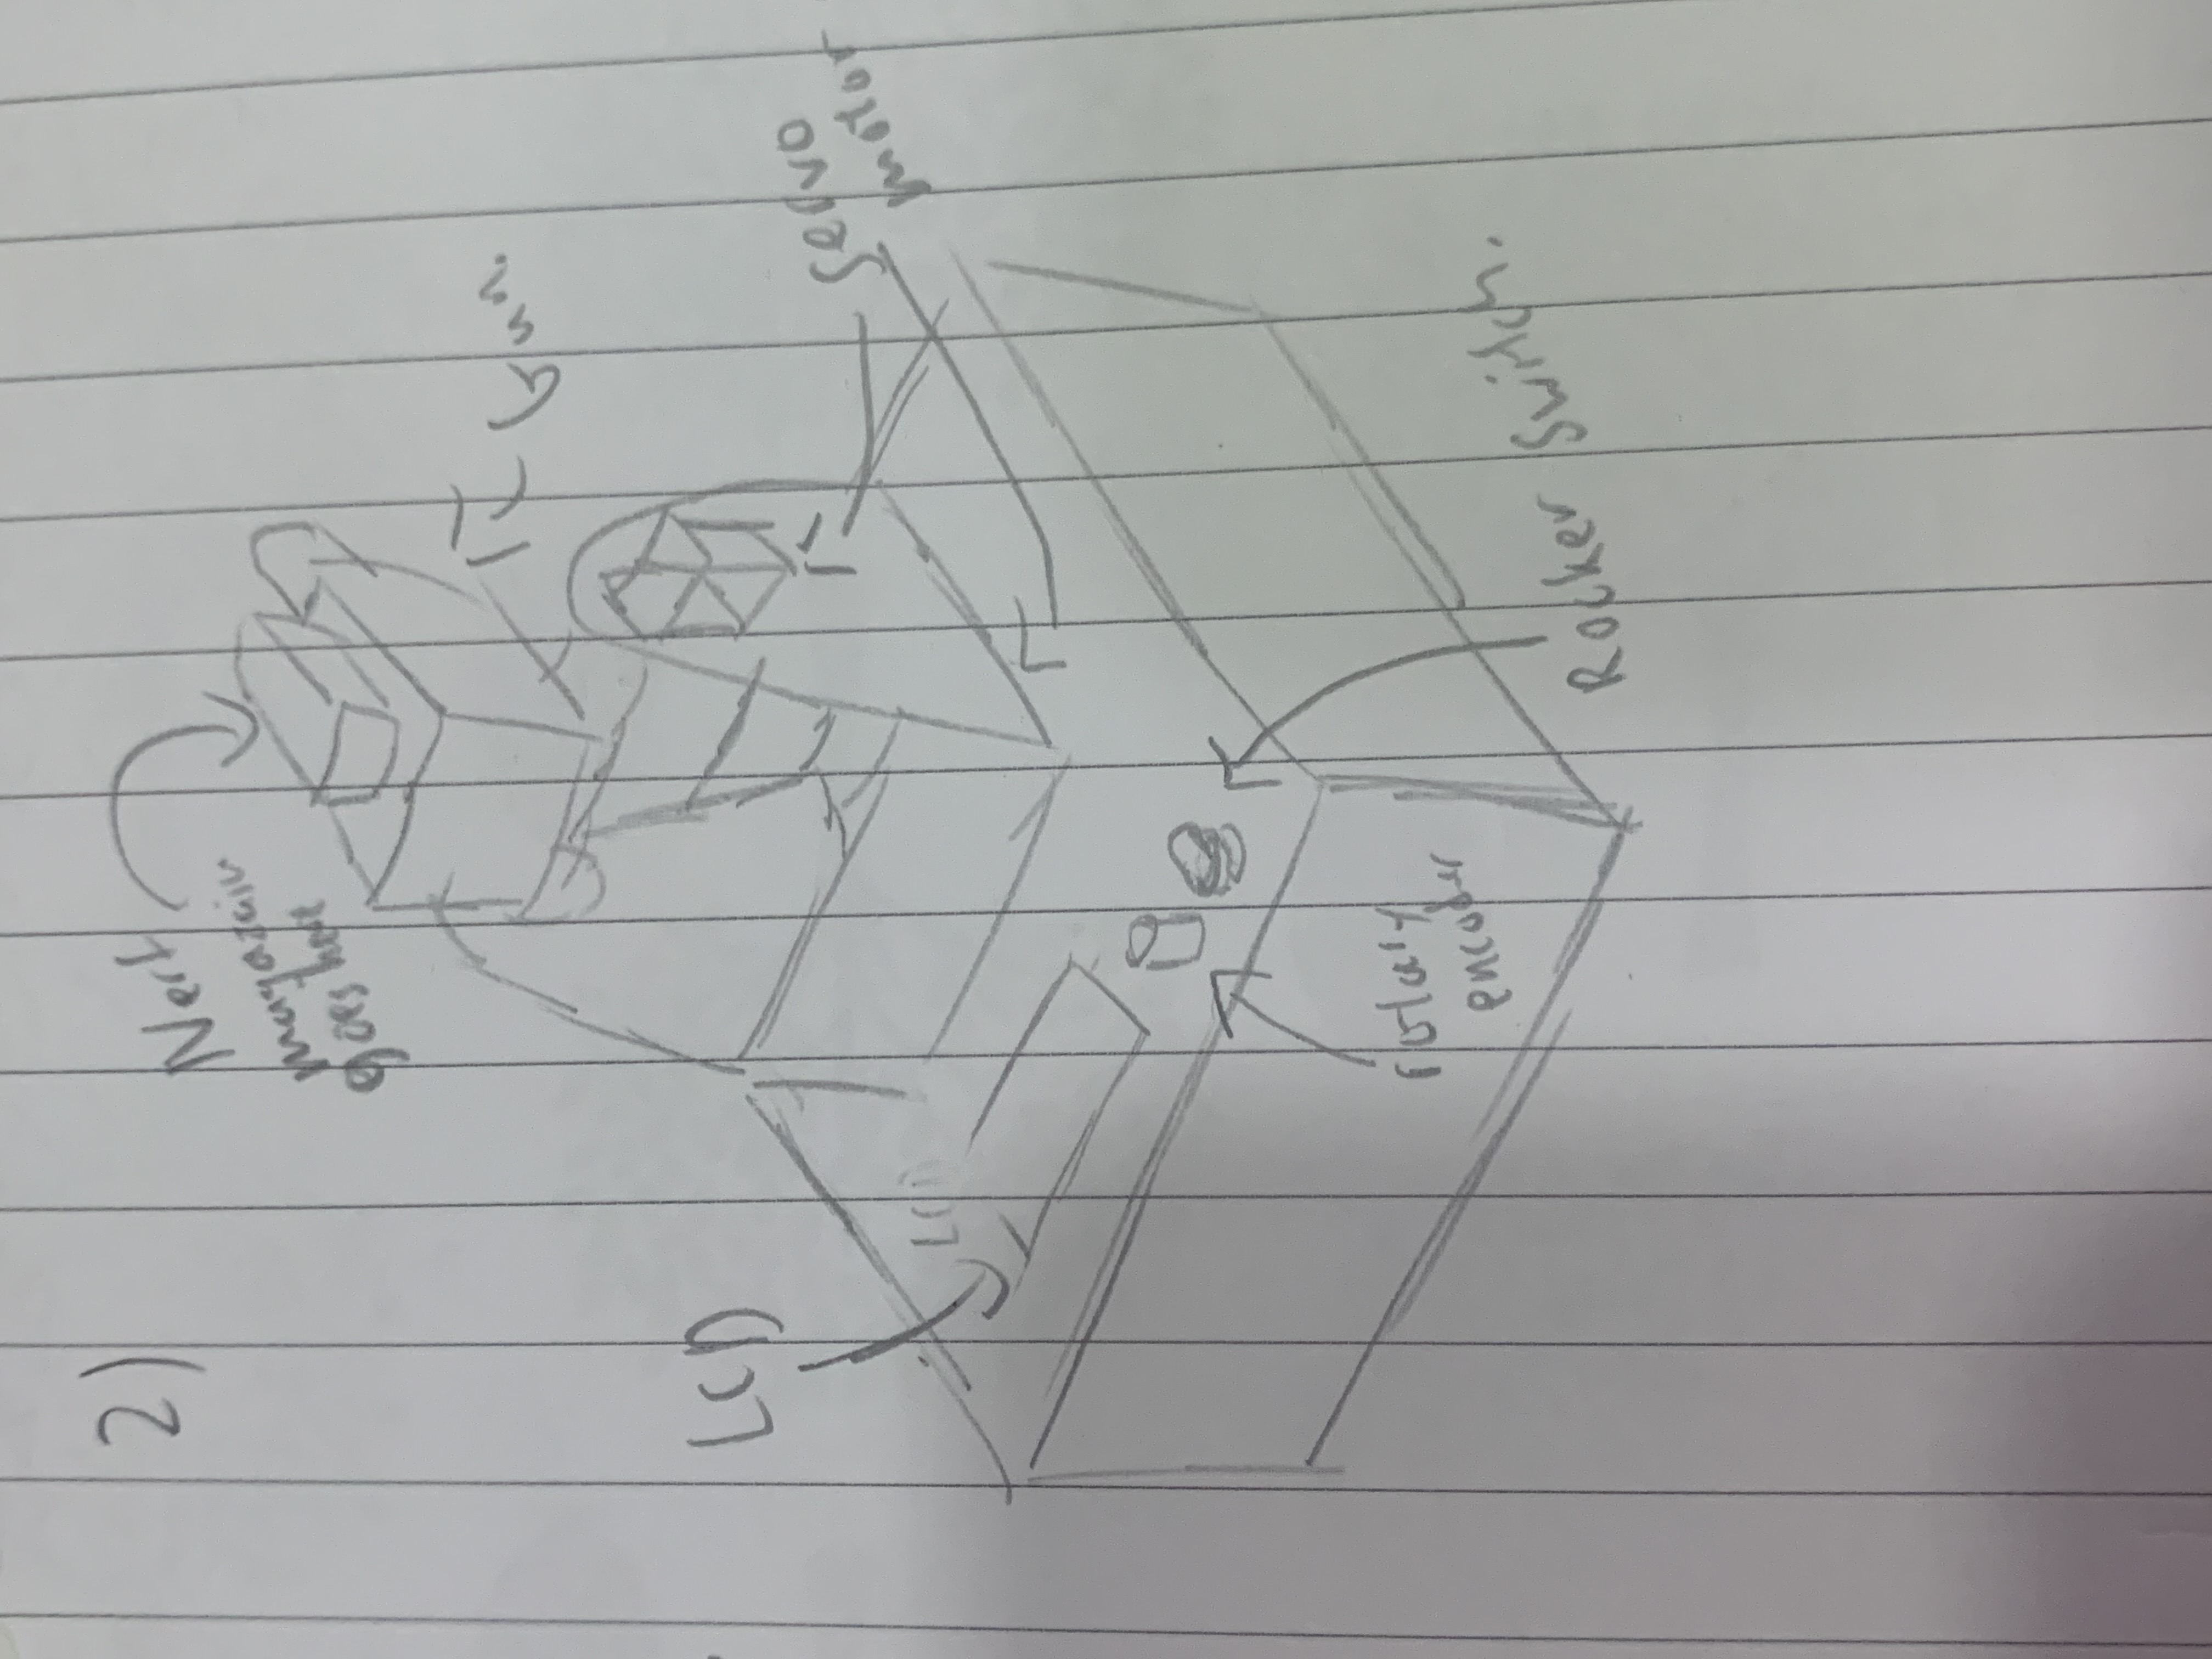 2)
Nerf
magazain
goes here
Gun.
LCD
LCD
Servo
motor
rotary
encoder
Rocker Switch.